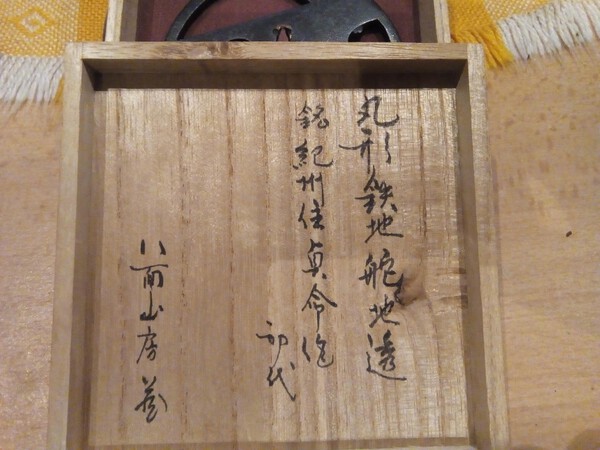 丸形鉄地舵地透
銘紀州住貞命作
初代
八面山房蔵